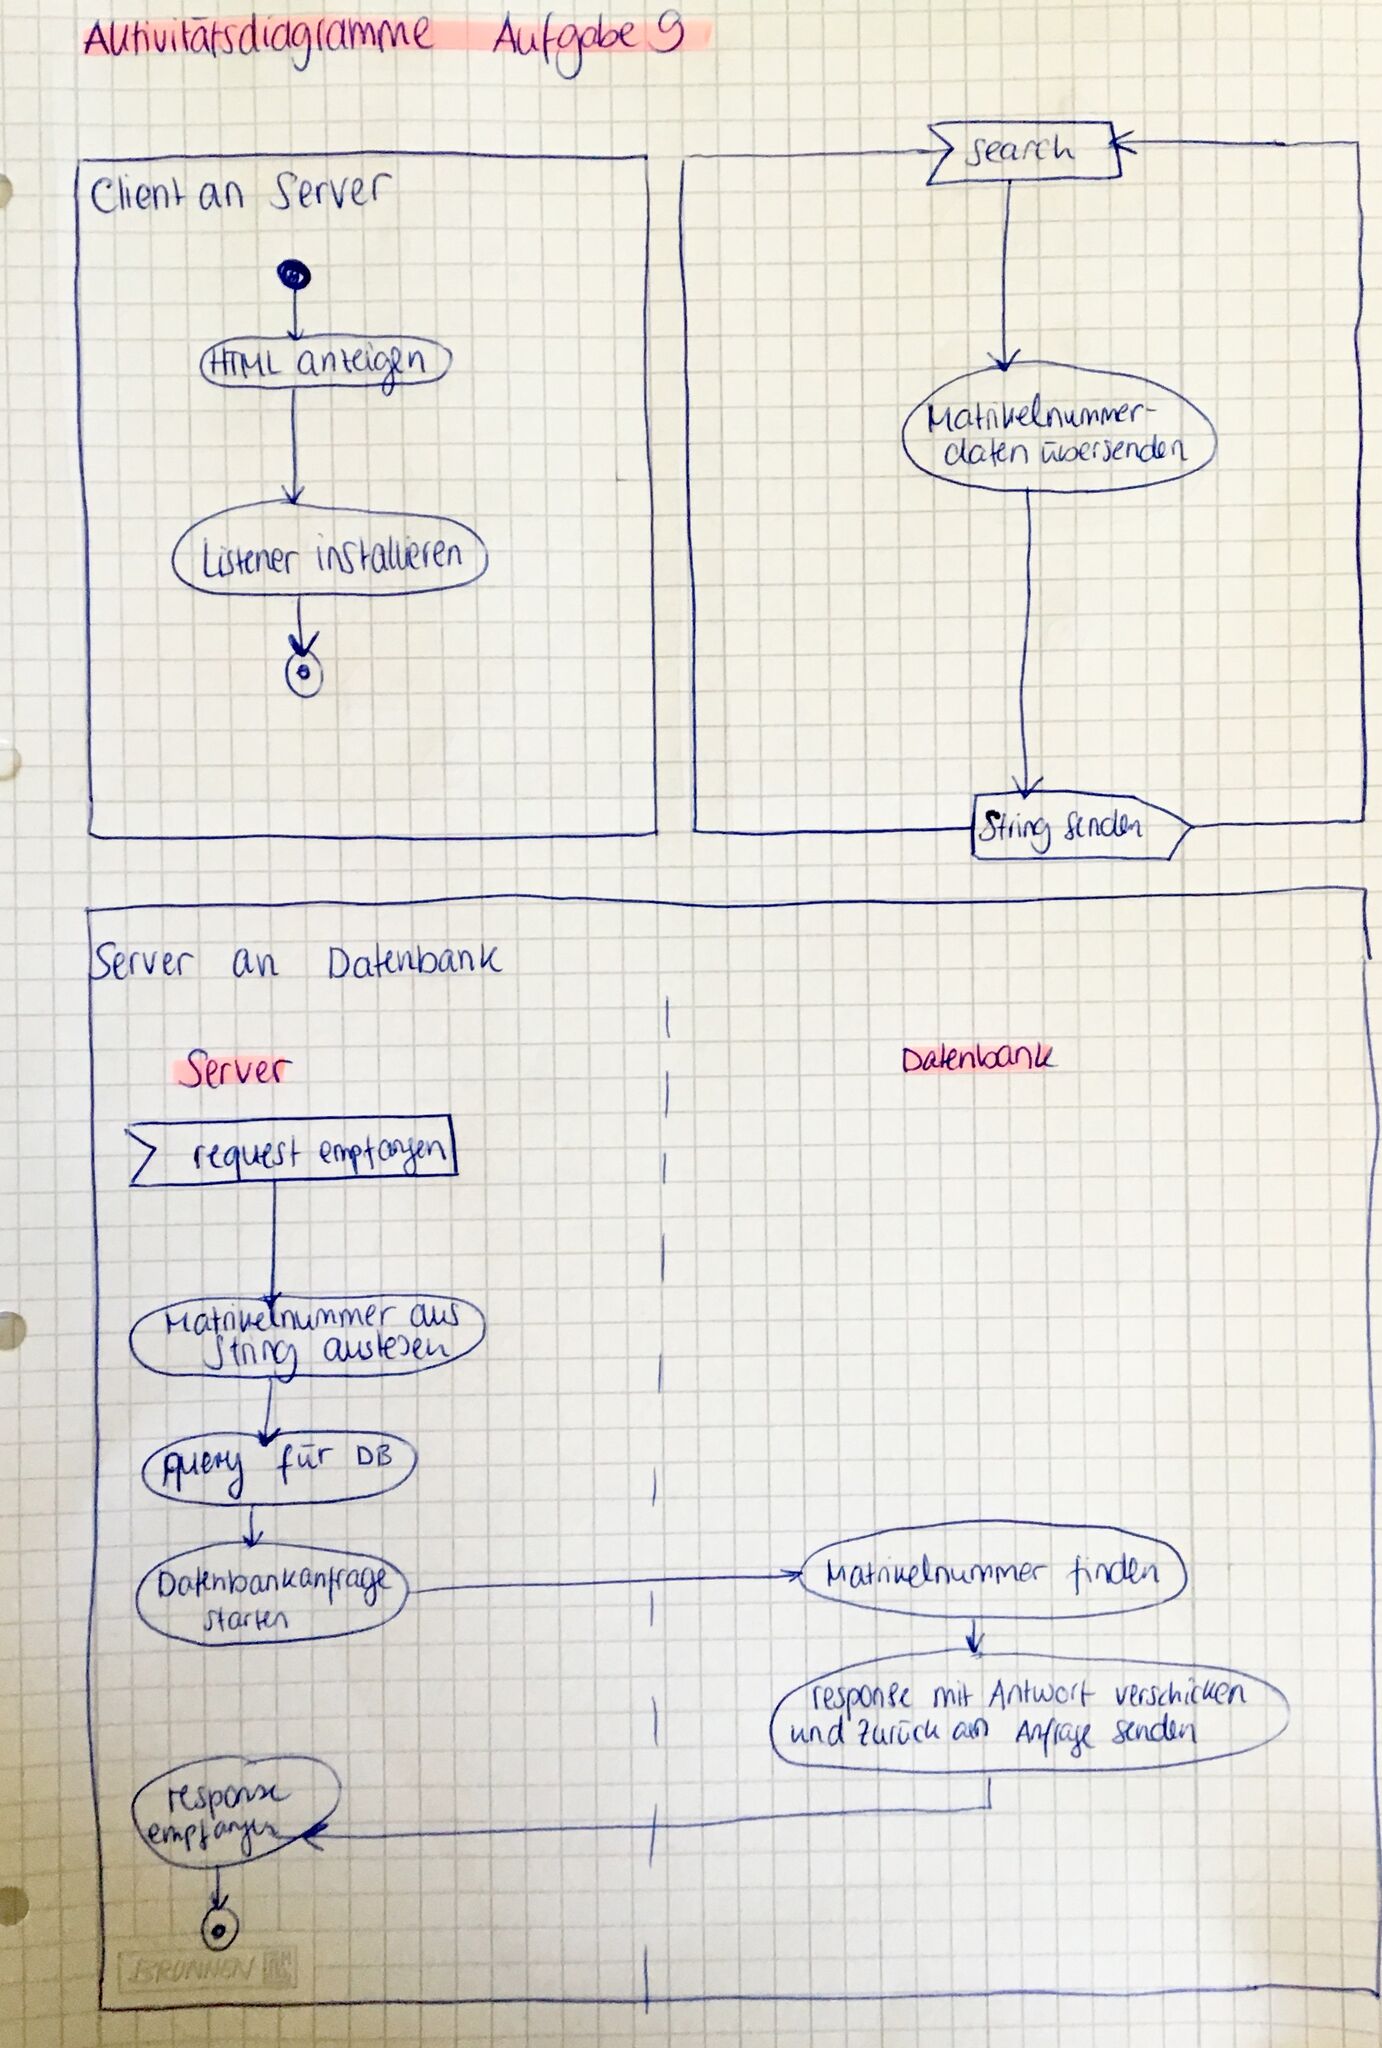 Aktivitätsdiagramme Aufgabe 9
Client an Server
HTML anzeigen
Listener installieren
search
Matrikelnummer-
daten übersenden
String senden
Server an Datenbank
Server
Datenbank
request empfangen
Matrikelnummer aus
String auslesen
query für DB
Datenbankanfrage
starten
Matrikelnummer finden
response mit Antwort verschicken
und zurück an Anfrage senden
response
empfangen
BRUNNEN